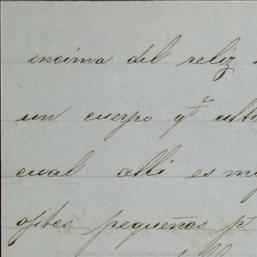 encima del reliz
un cuerpo qe
cual alli es
ojites pequeños pr